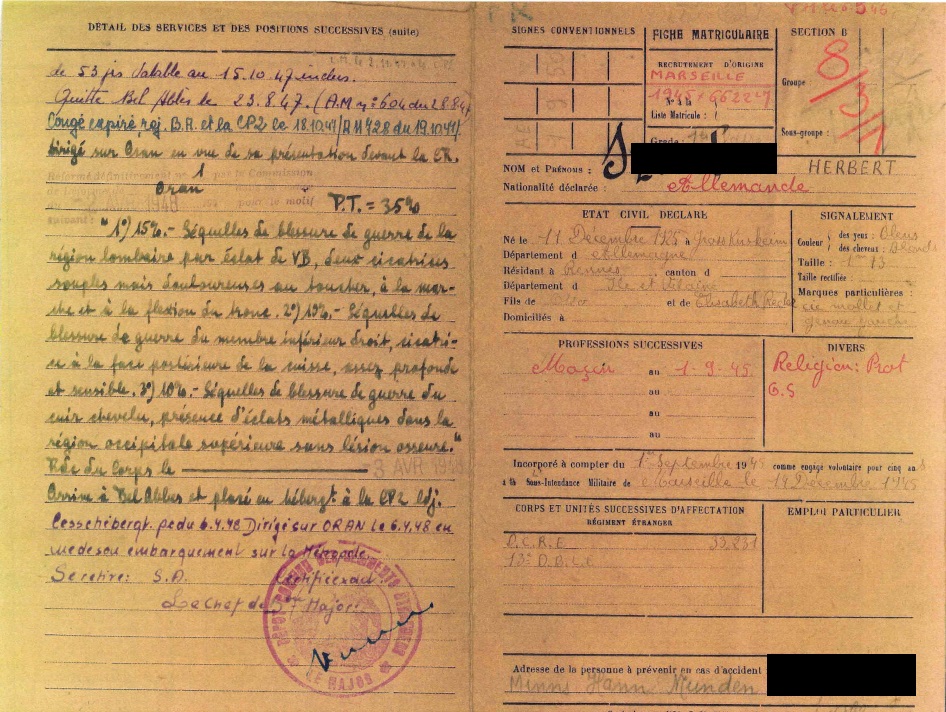 DÉTAIL DES SERVICES ET DES POSITIONS SUCCESSIVES (suite)
de 53 jrs Valable au 15.10.47 inclus.
Quitte Bel Abbès le 23.8.47. (A.M. n° 604 du 28.8.47
Congé expiré rej. B.A. et la CP2 le 18.10.47/AM 728 du 19.10.47/
Dirigé sur Oran en vue de sa présentation devant la CR.
Réformé définitivement n° 1 par la Commission
Oran
1948 pour le motif
suivant: P.T. = 35%
"1°) 15%.- Séquelles de blessure de guerre de la
région lombaire par éclat de VB, deux cicatrices
souples mais douloureuses au toucher, à la mar-
che et à la flexion du tronc. 2°) 10%.- Séquelles de
blessure de guerre du membre inférieur droit, cicatri-
ce à la face postérieure de la cuisse, assez profonde
et sensible. 3°) 10%.- Séquelles de blessure de guerre du
cuir chevelu, présence d'éclats métalliques dans la
région occipitale supérieure sans lésion osseuse."
Rdc du Corps le 8 AVR 1948
Arrive à Bel Abbes et placé en hébergt à la CP2 ldj.
Cesse hébergt. pc du 6.4.48 Dirigé sur ORAN le 6.4.48 en
vue de son embarquement sur la Métropole
Se retire: S.A. Certifié exact.
Le Chef de Major:
DÉPÔT COMMUN DES RÉGIMENTS ÉTRANGERS
LE MAJOR
SIGNES CONVENTIONNELS
FICHE MATRICULAIRE
RECRUTEMENT D'ORIGINE
MARSEILLE
1945
N° à la
Liste Matricule :
Grade :
SECTION B
Groupe
8/3/1
Sous-groupe :
NOM et Prénoms : S HERBERT
Nationalité déclarée : Allemande
ETAT CIVIL DECLARE
Né le 11 Décembre 1925 à
Département d Allemagne
Résidant à Rennes canton d
Département d Ile et Vilaine
Fils de et de Elisabeth
Domiciliés à
SIGNALEMENT
Couleur des yeux : bleus
des cheveux : blonds
Taille : 1m 73
Taille rectifiée :
Marques particulières :
cic mollet et
genou gauche
PROFESSIONS SUCCESSIVES
Maçon au 1-9-45
au
au
au
DIVERS
Religion: Prot
G.S
Incorporé à compter du 1er Septembre 1945 comme engagé volontaire pour cinq ans
à la Sous-Intendance Militaire de Marseille le 19 Décembre 1945
CORPS ET UNITÉS SUCCESSIVES D'AFFECTATION
RÉGIMENT ÉTRANGER
D.C.R.E 33.231
13e D.B.L.E
EMPLOI PARTICULIER
Adresse de la personne à prévenir en cas d'accident
Hann Munden